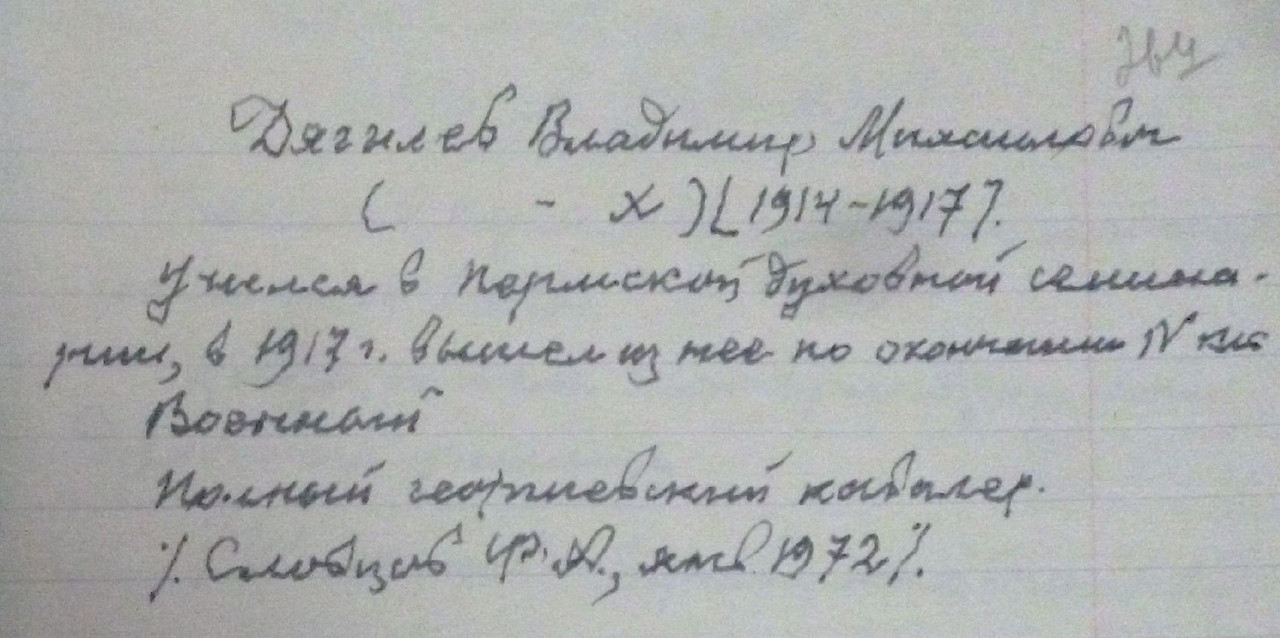 Дягилев Владимир Михайлович
( - X) [1914-1917].
Учился в Пермской духовной семина-
рии, в 1917 г. вышел из нее по окончании IV кл.
Военный
Полный георгиевский кавалер.
/. Слобцов янв. 1972/.